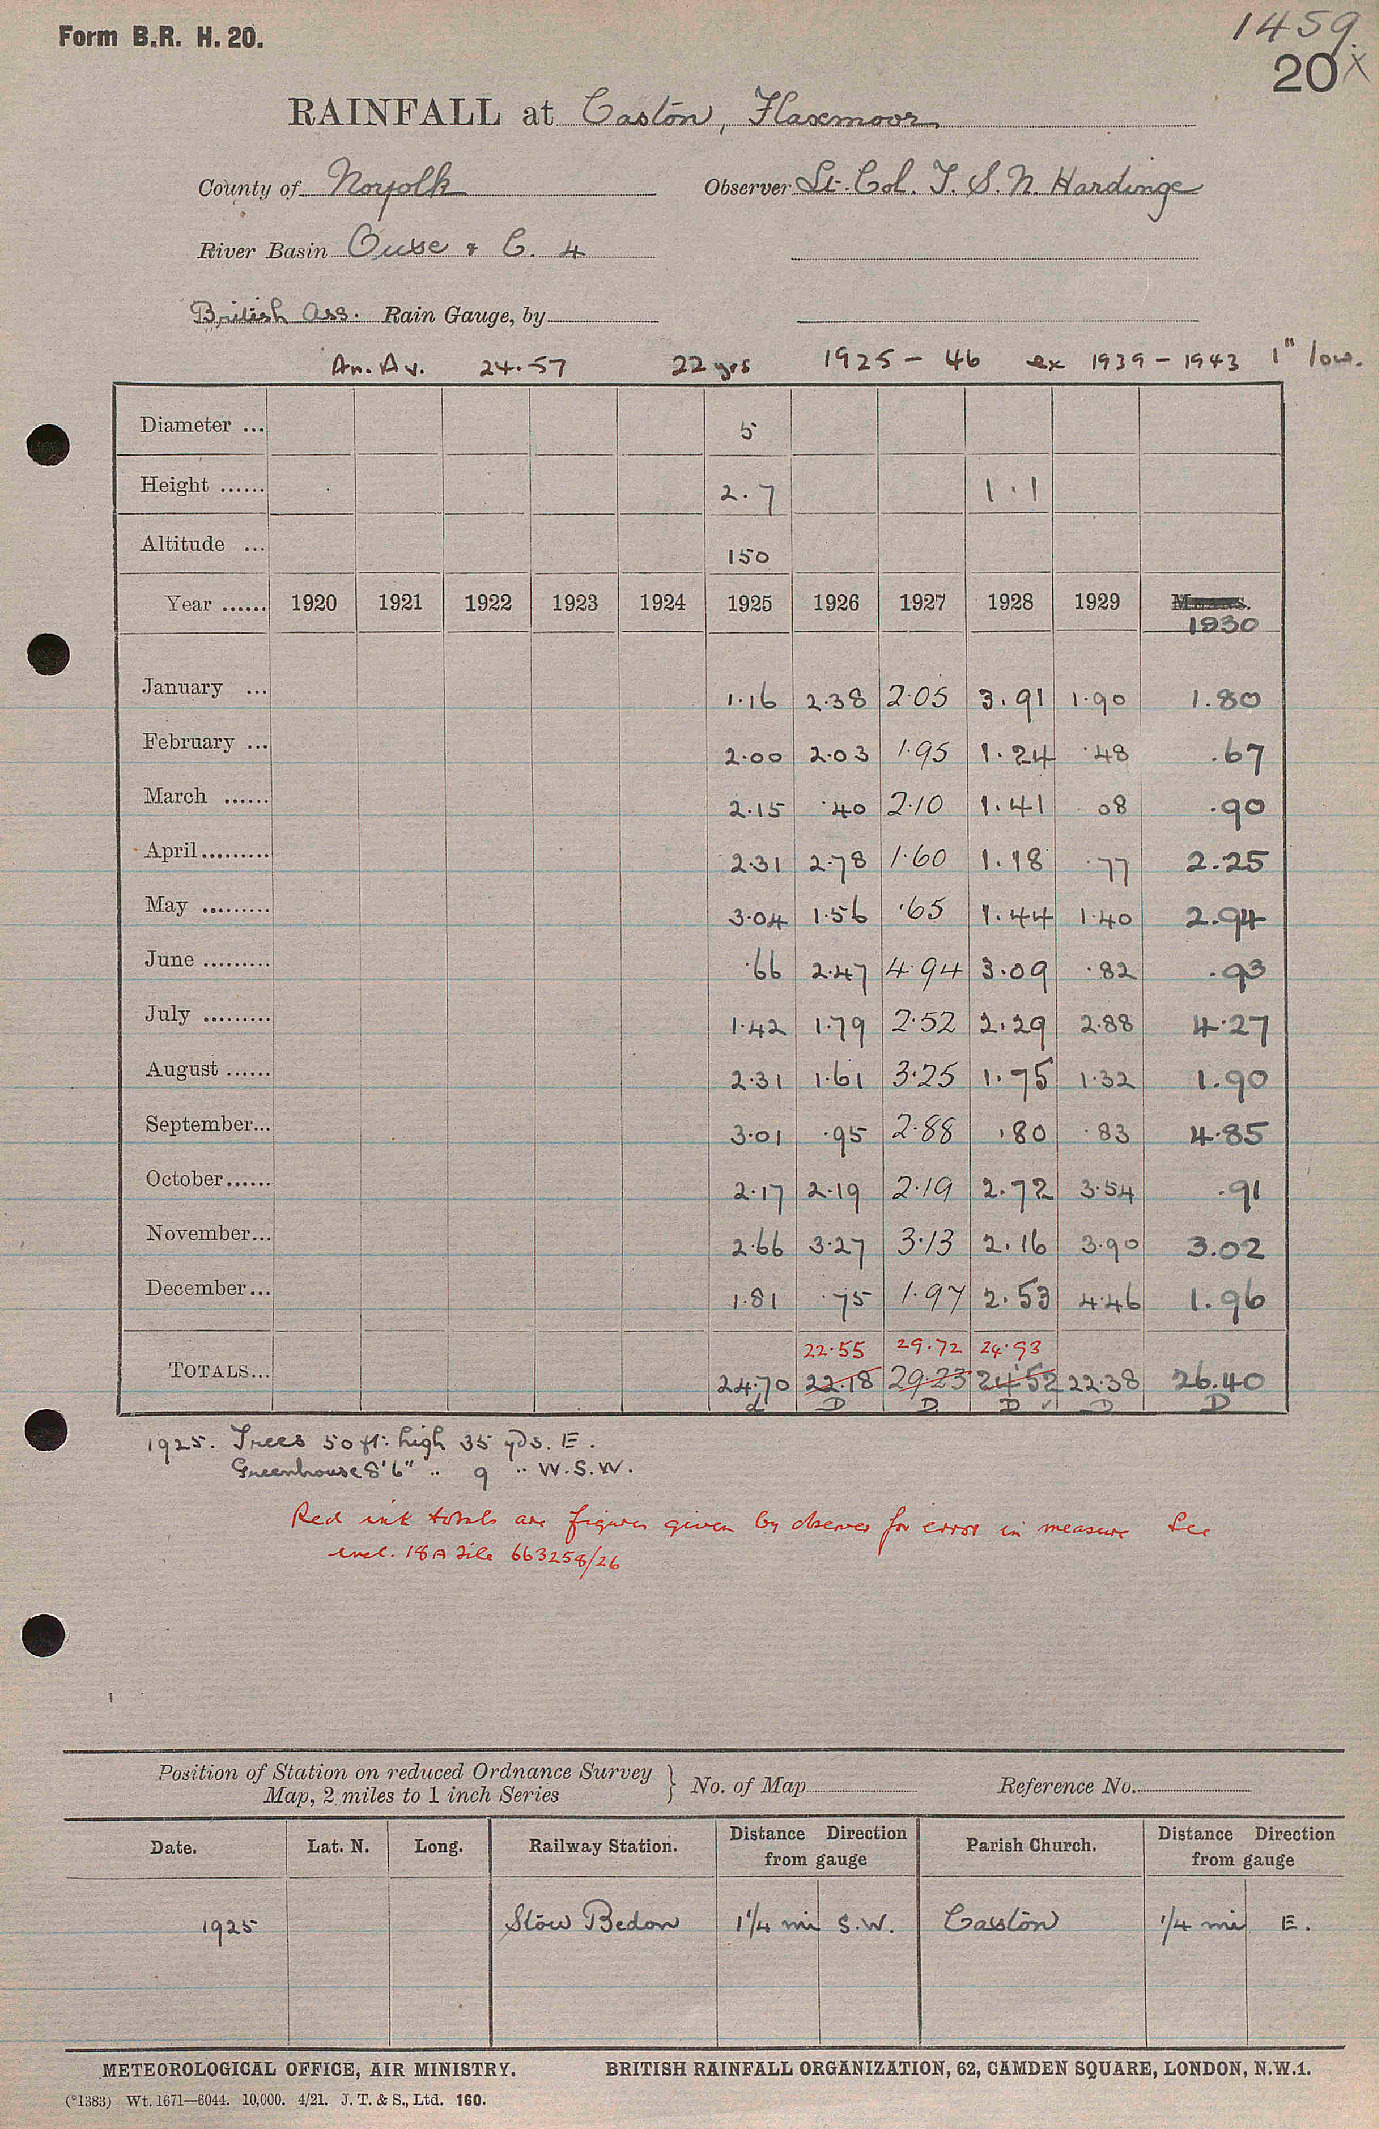 Form B.R. H. 20.
1459.
20 x
RAINFALL at Caston, Flaxmoor.
County of Norfolk Observer Lt. Col. T. S. N. Hardinge
River Basin Ouse & C. 4
British Ass. Rain Gauge, by
An. Av. 24.57 22 yrs 1925 - 46 ex 1939 - 1943 1" low.
Diameter ... 5
Height ...... 2.7 1.1
Altitude ... 150
Year ...... 1920 1921 1922 1923 1924 1925 1926 1927 1928 1929 Means. 1930
January ... 1.16 2.38 2.05 3.91 1.90 1.80
February ... 2.00 2.03 1.95 1.24 .48 .67
March ...... 2.15 .40 2.10 1.41 08 .90
April......... 2.31 2.78 1.60 1.18 .77 2.25
May ......... 3.04 1.56 .65 1.44 1.40 2.94
June ......... .66 2.47 4.94 3.09 .82 .93
July ......... 1.42 1.79 2.52 2.29 2.88 4.27
August ...... 2.31 1.61 3.25 1.75 1.32 1.90
September... 3.01 .95 2.88 .80 .83 4.85
October...... 2.17 2.19 2.19 2.72 3.54 .91
November... 2.66 3.27 3.13 2.16 3.90 3.02
December... 1.81 .75 1.97 2.53 4.46 1.96
22.55 29.72 24.93
TOTALS... 24.70 22.18 29.23 24.52 22.38 26.40
D D D D D
1925. Trees 50 ft. high 35 yds. E.
Greenhouse 8'6" .. 9 .. W.S.W.
Red ink totals are figures given by observer for error in measure See
encl. 18A File 663258/26
Position of Station on reduced Ordnance Survey
Map, 2 miles to 1 inch Series } No. of Map Reference No.
Date. Lat. N. Long. Railway Station. Distance Direction from gauge Parish Church. Distance Direction from gauge
1925 Stow Bedon 1 1/4 mi S.W. Casston 1/4 mi E.
METEOROLOGICAL OFFICE, AIR MINISTRY. BRITISH RAINFALL ORGANIZATION, 62, CAMDEN SQUARE, LONDON, N.W.1.
(*1383) Wt. 1671—6044. 10,000. 4/21. J. T. & S., Ltd. 160.